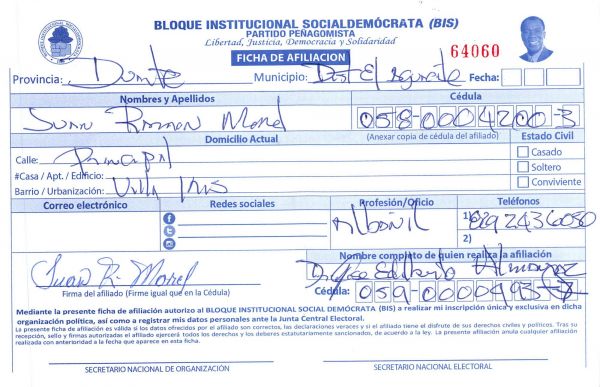 BLOQUE INSTITUCIONAL SOCIALDEMÓCRATA (BIS)
PARTIDO PEÑAGOMISTA
Libertad, Justicia, Democracia y Solidaridad
FICHA DE AFILIACION
64060
Provincia: Duarte Municipio: Fecha:
Nombres y Apellidos Cédula
Juan Ramon Morel 058-0004200-3
Domicilio Actual (Anexar copia de cédula del afiliado) Estado Civil
Calle: Principal Casado
#Casa / Apt. / Edificio: Soltero
Barrio / Urbanización: Villa Conviviente
Correo electrónico Redes sociales Profesión/Oficio Teléfonos
Albañil 1) 8292436050
2)
Nombre completo de quien realiza la afiliación
Juan R. Morel
Firma del afiliado (Firme igual que en la Cédula) Cédula: 059-0000493-
Mediante la presente ficha de afiliación autorizo al BLOQUE INSTITUCIONAL SOCIAL DEMÓCRATA (BIS) a realizar mi inscripción única y exclusiva en dicha
organización política, así como a registrar mis datos personales ante la Junta Central Electoral.
La presente ficha de afiliación es válida si los datos ofrecidos por el afiliado son correctos, las declaraciones veraces y si el afiliado tiene el disfrute de sus derechos civiles y políticos. Tras su
recepción, sello y firmas autorizadas el afiliado ejercerá todos los derechos y los deberes estatutariamente sancionados, de acuerdo a la ley. La presente afiliación anula cualquier afiliación
realizada con anterioridad a la fecha que aparece en esta ficha.
SECRETARIO NACIONAL DE ORGANIZACIÓN SECRETARIO NACIONAL ELECTORAL